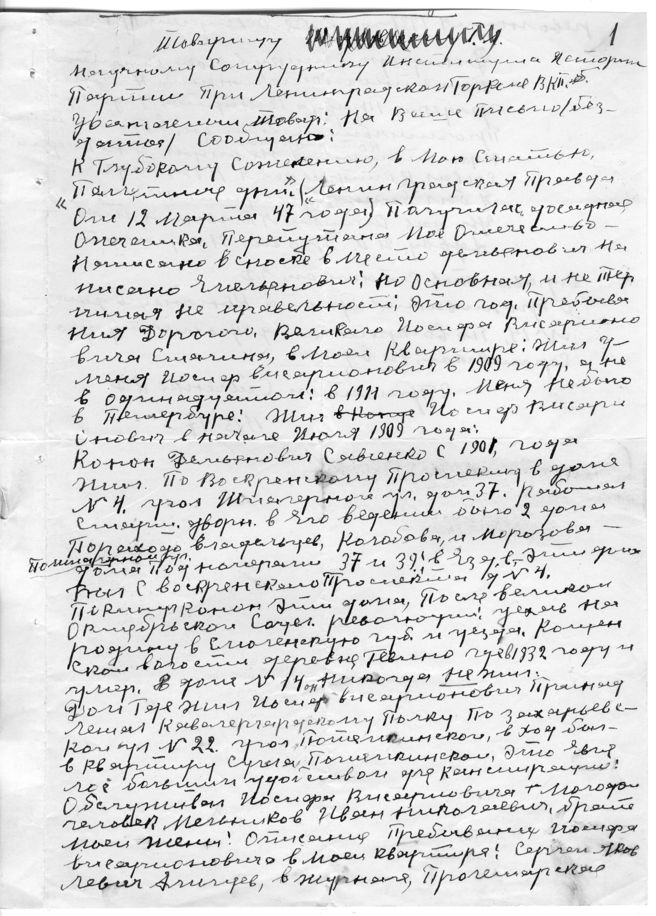 1
Товарищу
Научному Сотруднику Института Истории
Партии При Ленинградском Горкоме ВКП.б.
Уважаемый товар: На Ваше Письмо/без-
даты/ Сообщаю:
К Глубокому Сожелению, в мою Статью,
"Памятные дни" (Ленинградская Правда
От 12 Марта 47 "года) Получилась досадная
Опечатка, Перепутана Мое Отечество-
Написано в сноске в место демьянович на
писано Емельянович; но Основная, и не тер
пимая не правельность; Это год. Пребыва
ния Дорогого, Великаго Иосифа Висарионо
вича Сталина, в моей Квартире; Жил у
меня Иосиф висарионович в 1909 году, а не
в одинадцатом: в 1911 году. Меня не было
в Петербурге: Жил Иосиф Висари
онович в начале Июля 1909 года:
Конон Демьянович Савченко С 1901, года
Жил. По Воскренскому Проспекту в доме
№ 4. угол Шпалерной ул. дом 37. работал
Старш. дворн. в Его ведении было 2 дома
владельцев, и Морозова -
дома Под номерами 37 и 39: в Эти дома
был С воскренского Проспекта № 4.
Покинул Конон Эти дома, После великой
Октябрьской Соцел. революции: уехав на
родину в Смоленскую губ. и уезда,
ской волости деревня где в 1932 году и
умер. В доме № 14, он никогда не жил.
Дом Где Жил Иосиф висарионович Принад
лежал Кавалергардскому Полку По захарьевс-
кой ул № 22. угол Потемкинской, в ход был-
в квартиру С угла Потемкинской, Это явля
лось большим удобством для Конспирации:
Обслуживал Иосифа Висарионовича + Молодой
человек Мельников Иван Николаевич, брат
моей жены! Описание Пребывания Иосифа
висарионовича в моей квартире: Сергей Яков
левич Алилуев, в журнале, Пролетарская